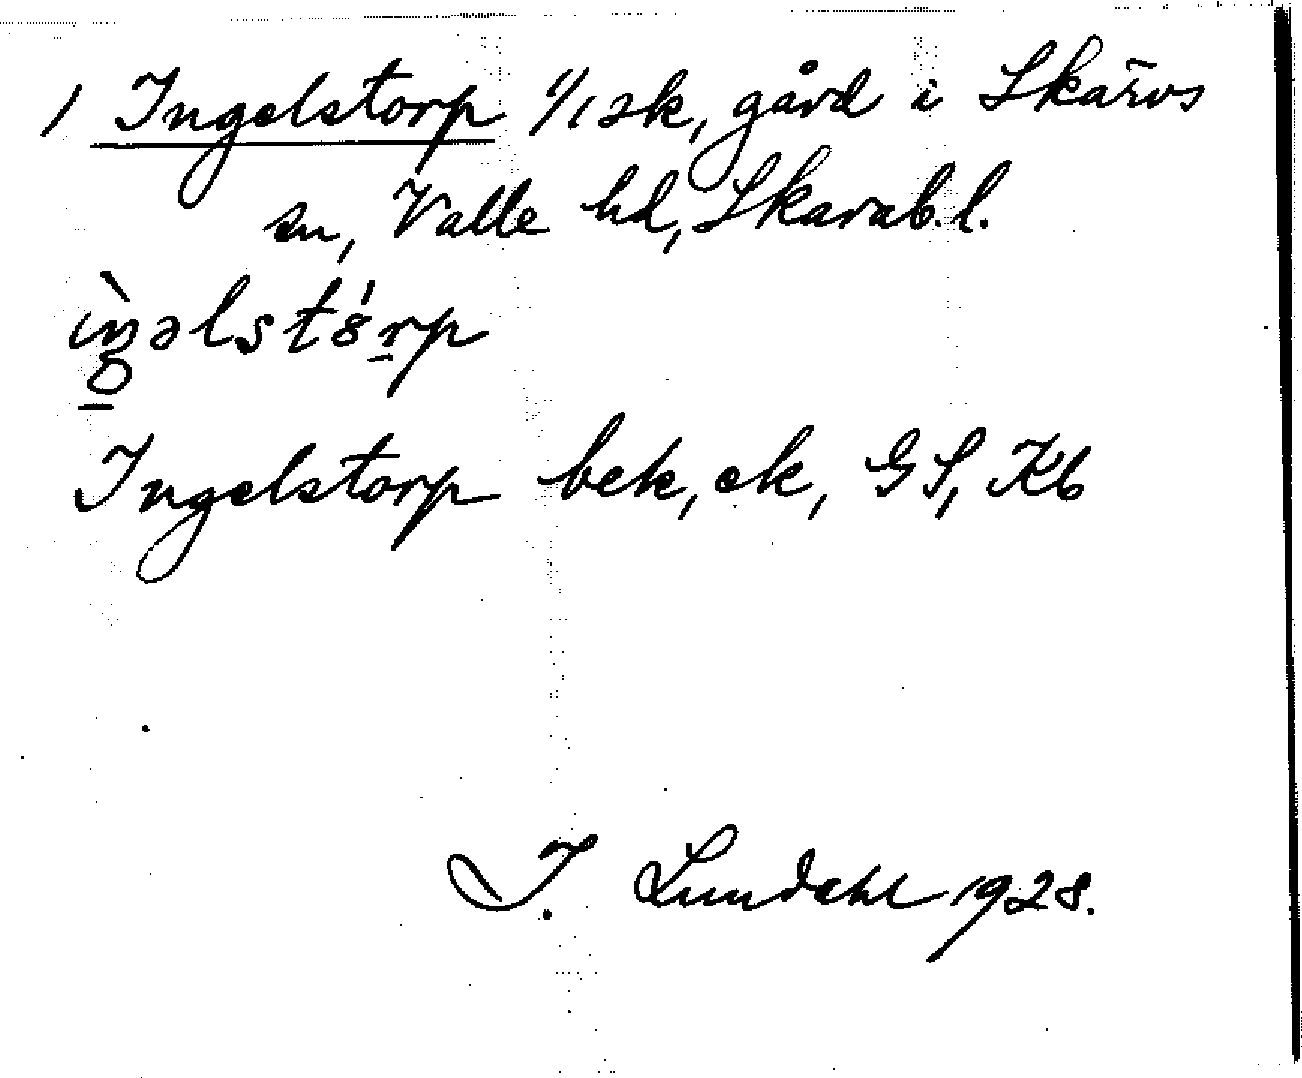 1 Ingelstorp 1/1 sk, gård i Skärvs
sn, Valle hd, Skarab. l.
Ingelstorp bek, ek, GS, Kb
I. Lundahl 1928.